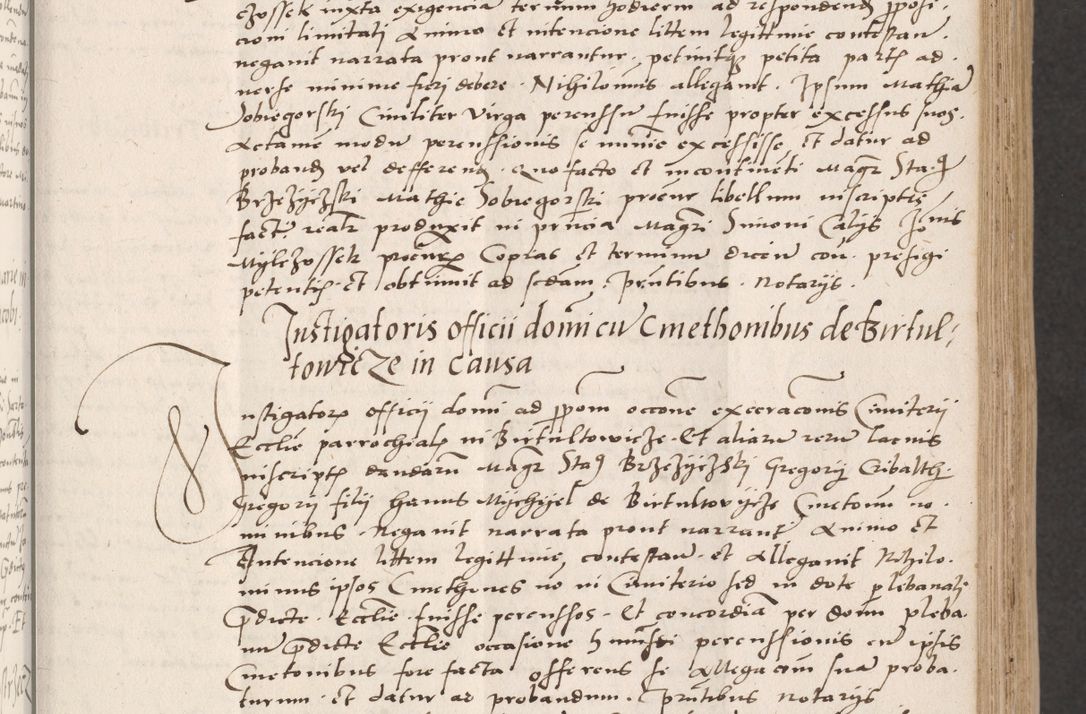 czossek iuxta exigencia termini hodierni ad respondend proposi-
cioni limitati Animo et intencione littem legittime contestan.
negavit narrata prout narrantur, petivitq petita partis ad.
verse minime fieri debere. Nihilominus allegavit. Ipsum Mathia
Sobiegorski Civiliter Virga perenssu fuisse propter excessus suos.
Actame modu perenssionis se minie excessisse, Et datur ad
proband vel defferend. Quo facto et incontineti Magr Sta
Brzezyczski Mathie Sobiegorski procur libellum inscriptis
factu realr produxit in pricia Magri Simoni Calijs
Mylczossek procurer Copias et terminu dicen con. prefigi
petentis. et obtinuit ad sedam. Pntibus. Notarijs.
Instigatoris officii domi cu Cmethonibus de Birtul-
towicze in causa
Instigatore officii domi ad ppom occone execracoms Cimiterii
Ecclie parrochialis in Birtultowicze. Et aliaru reru lacius
inscriptis dandaru Magr Sta Brzezyczski Gregorij Cribalth.
Gregorij filij hanus Mijchijel de Birtultovijcze Cmetom no.
minibus. Negavit narrata prout narrant Animo et
Intencione littem legittime, contestan. et Allegavit Nihilo.
minus ipsos Cmethones no in Cimiterio sed in dote plebanali
pdicte. Ecclie. fuisse perenssos. Et concordia per domi pleba.
nu pdicte Ecclie occasione h perenssionis cu ipsis
Cmetonibus fore facta offerens se Allegacom sua proba.
turum. et datur ad probandum. Pntibus notarijs